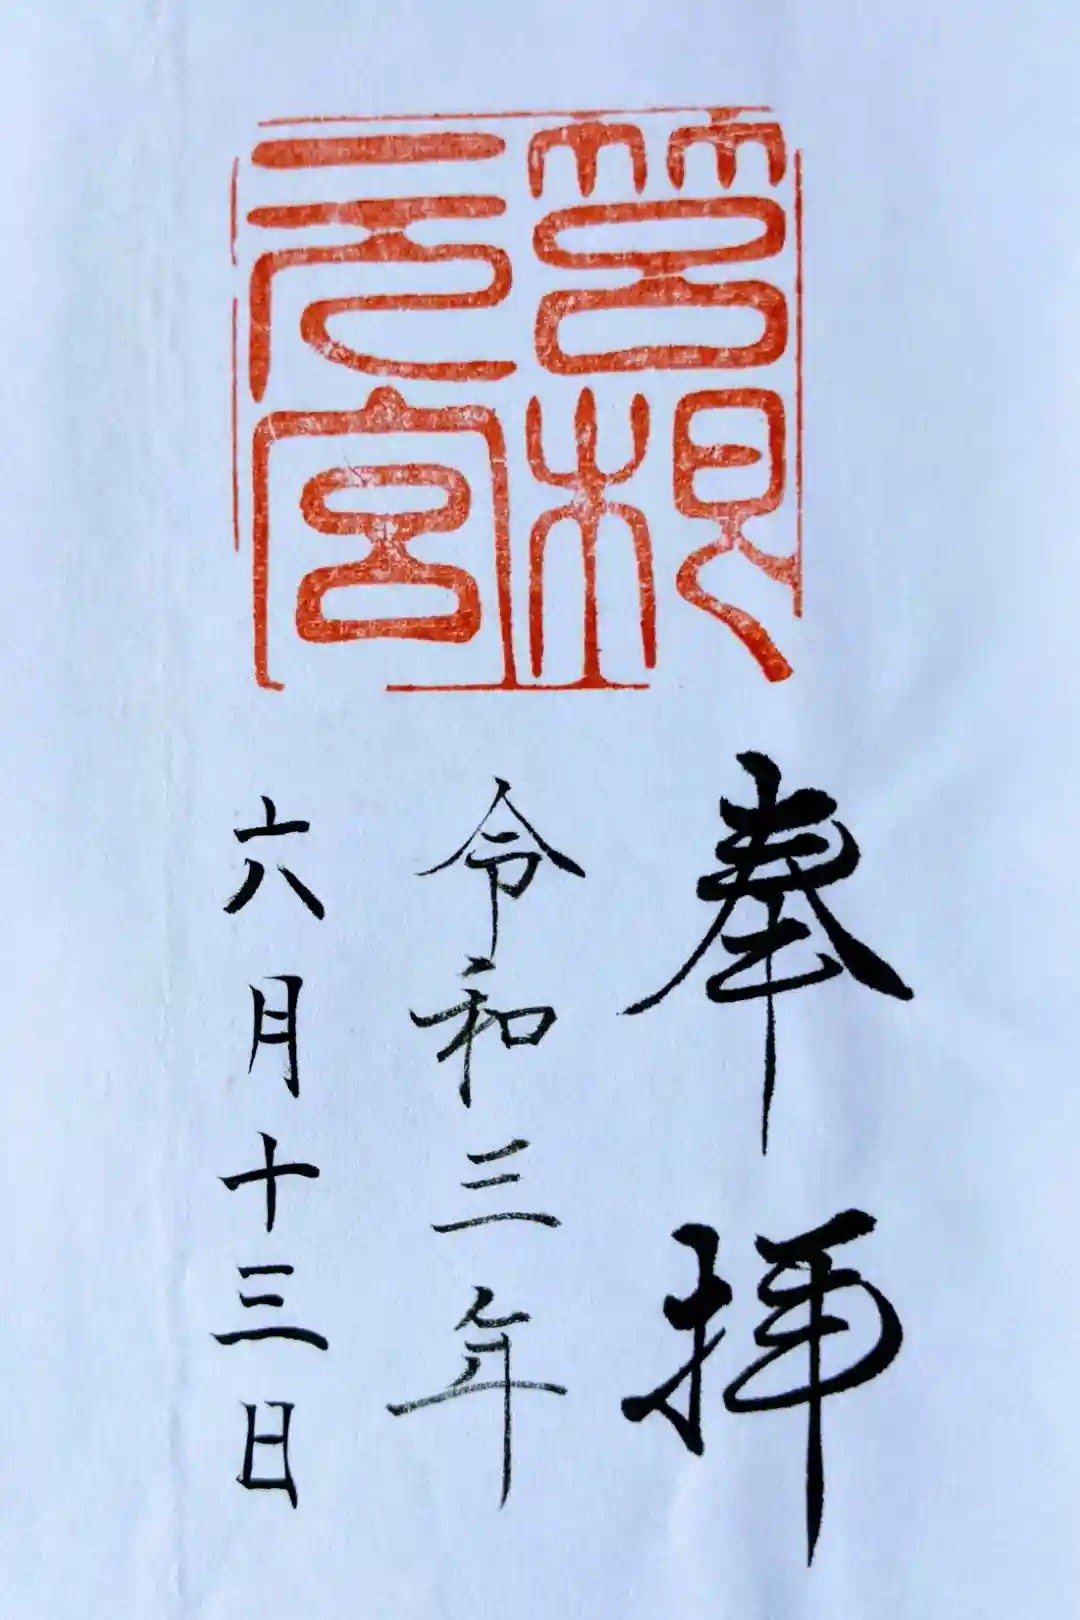 箱根
元宮
奉拝
令和三年
六月十三日